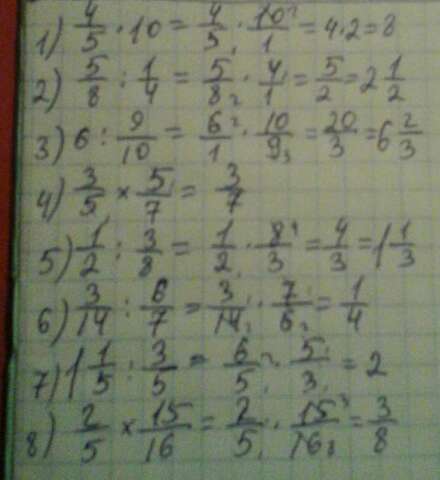 1) 4/5 · 10 = 4/5₁ · 10²/1 = 4·2 = 8
2) 5/8 : 1/4 = 5/8₂ · 4¹/1 = 5/2 = 2 1/2
3) 6 : 9/10 = 6²/1 · 10/9₃ = 20/3 = 6 2/3
4) 3/5 × 5/7 = 3/7
5) 1/2 : 3/8 = 1/2₁ · 8⁴/3 = 4/3 = 1 1/3
6) 3/14 : 6/7 = 3₁/14₂ · 7₁/6₂ = 1/4
7) 1 1/5 : 3/5 = 6²/5₁ · 5₁/3₁ = 2
8) 2/5 × 15/16 = 2/5₁ · 15³/16₈ = 3/8